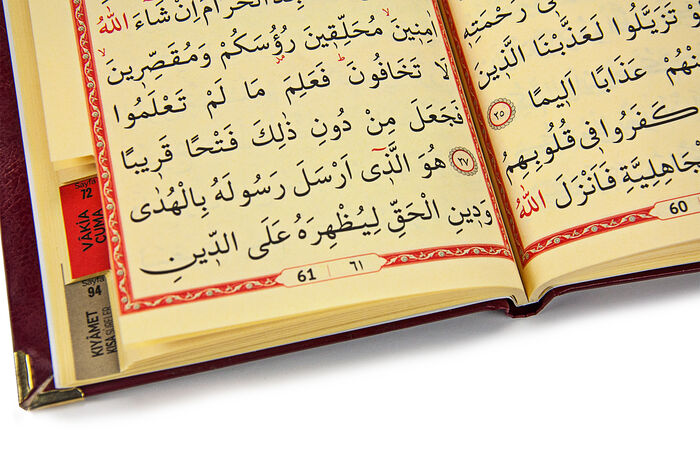 رَحْمَتِهِ
تَزَيَّلُوا لَعَذَّبْنَا الَّذِينَ
عَذَابًا اَلِيمًا ٢٥
كَفَرُوا فِى قُلُوبِهِمُ
فَاَنْزَلَ اللّٰهُ
60
الْحَرَامَ اِنْ شَاءَ اللّٰهُ
اٰمِنِينَ مُحَلِّقِينَ رُؤُسَكُمْ وَمُقَصِّرِينَ
لَا تَخَافُونَ فَعَلِمَ مَا لَمْ تَعْلَمُوا
فَجَعَلَ مِنْ دُونِ ذٰلِكَ فَتْحًا قَرِيبًا
٢٧ هُوَ الَّذِى اَرْسَلَ رَسُولَهُ بِالْهُدٰى
وَدِينِ الْحَقِّ لِيُظْهِرَهُ عَلَى الدِّينِ
61 ٦١
Sayfa
72
VÂKIA
CUMA
Sayfa
94
KIYÂMET
KISA SÛRELER